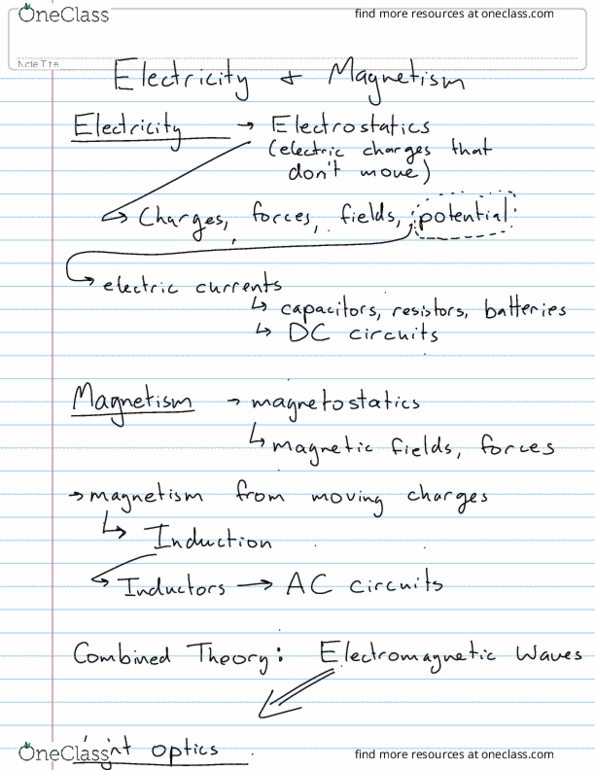 OneClass find more resources at oneclass.com
Note Title
Electricity & Magnetism
Electricity → Electrostatics
(electric charges that
don't move)
↳ Charges, forces, fields, potential
↳ electric currents
↳ capacitors, resistors, batteries
↳ DC circuits
Magnetism → magnetostatics
↳ magnetic fields, forces
→ magnetism from moving charges
↳ Induction
↳ Inductors → AC circuits
Combined Theory: Electromagnetic Waves
optics
OneClass find more resources at oneclass.com